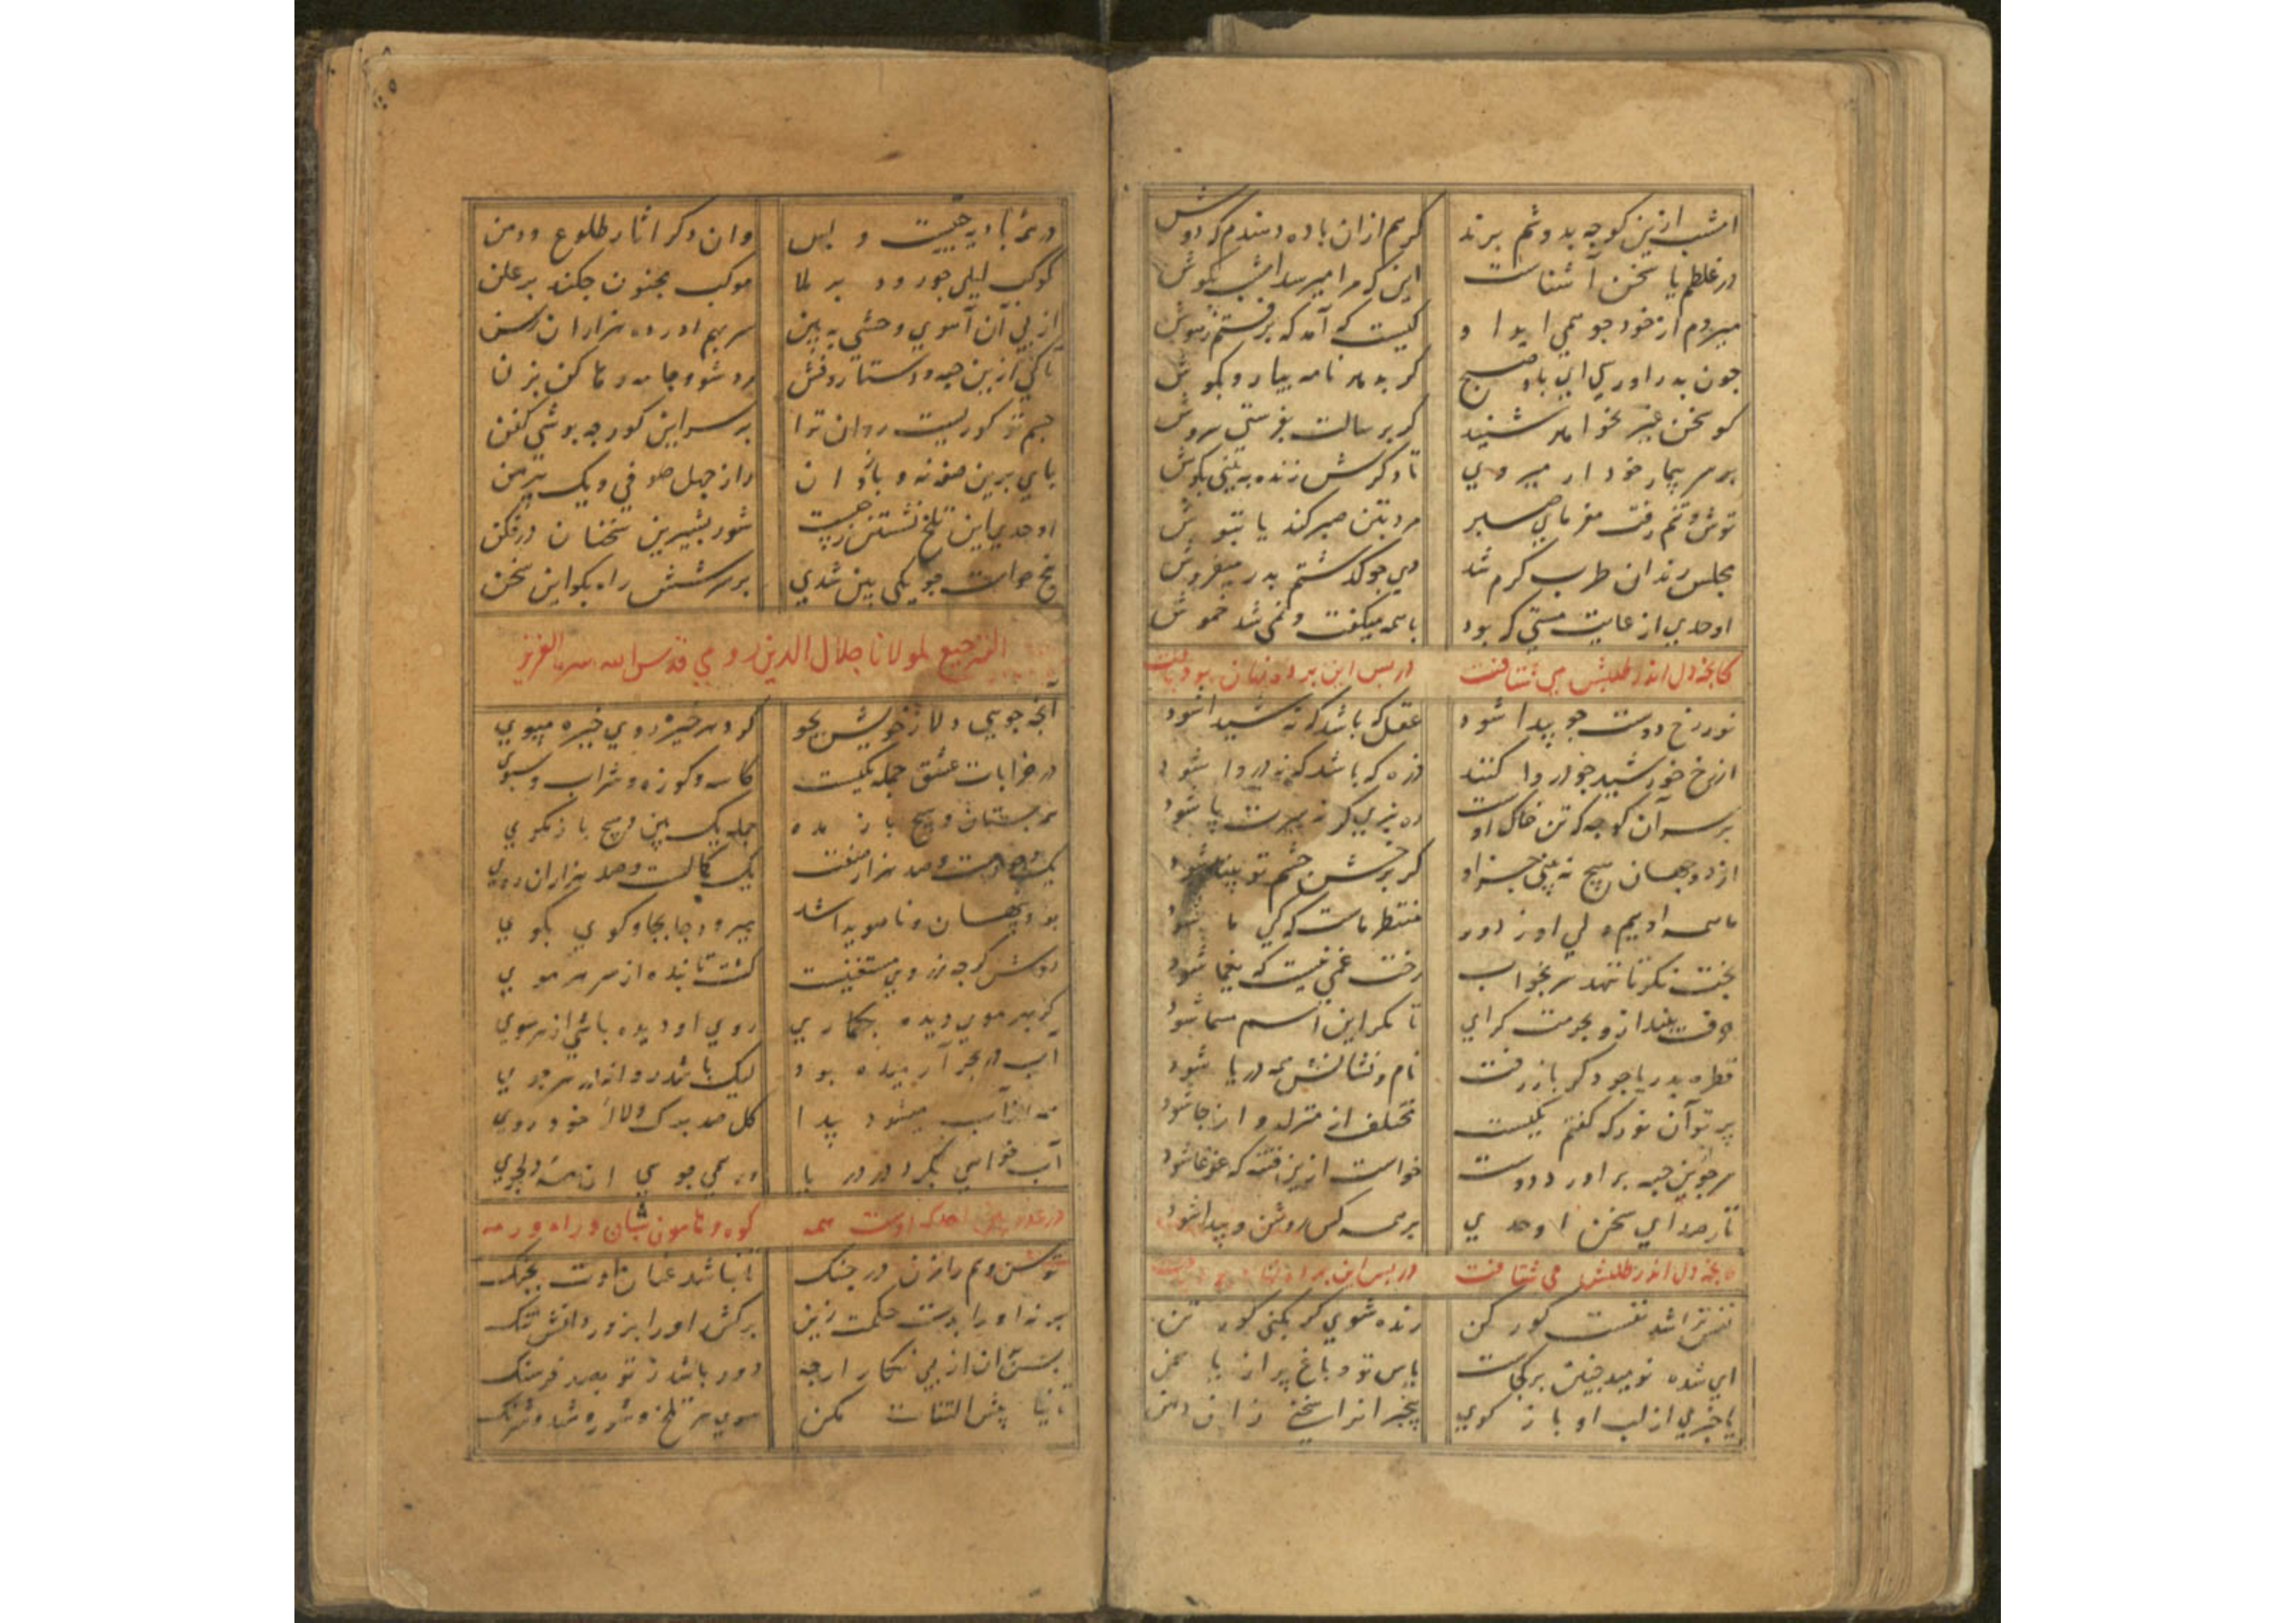 امشب ازین کوچه بدوشم برند کریم ازان باده دهندم که دوش
در غلطم یا سخن آشناست این که مرا میرسد امشب بگوش
میروم از خود چو همی اید او کیست که آمد که برفتم ز هوش
چون بدر اوری ای باد صبح کر بدهد نامه بیار و بکوش
کو سخن غیر نخواهد شنید کر برسالت بفرستی سروش
بر سر بیمار خود ار میروی تا دکرش زنده به بینی بکوش
توش و تنم رفت مفرمای صبر مرد بتن صبر کند یا بتوش
مجلس رندان طرب کرم شد دی چو کذشتم بدر میفروش
اوحدی از غایت مستی که بود با همه میکفت و نمی شد خموش
کانچه دل اندر طلبش می شتافت در پس این پرده نهان بود یافت
نور رخ دوست چو پیدا شود عقل که باشد که نه شیدا شود
از رخ خورشید چو در وا کنند ذره که باشد که نه دروا شود
بر سر آن کوچه که تن خاک اوست
از دو جهان هیچ نه بینی جز او کر برخش چشم تو بینا شود
ما همه اوییم ولی او ز دور منتظر ماست که کی ما شود
بخت نکر تا ننهد سر بخواب رخت غمی نیست که یغما شود
حرفت بینداز و بحرمت کرای تا مکر این اسم مسما شود
قطره بدریا چو دکر باز رفت نام و نشانش همه دریا شود
پرتو آن نور که کفتم یکیست مختلف از منزل و از جا شود
سر چو ازین جبه براورد دوست خواست ازین فتنه که غوغا شود
تا ز صدای سخن اوحدی بر همه کس روشن و پیدا شود
کانچه دل اندر طلبش می شتافت در پس این پرده نهان بود یافت
نفس تراشد نفست کور کن زنده شوی کر بکنی کور تن
ای شده نومید جنینت برکجاست پاس تو و باغ پر از یاسمن
یا خبری از لب او باز کوی
در شد با دیه حبیبت و بس وان دکر اثار طلوع و دمن
کوکب لیلی چو رود بر ملا موکب مجنون چکند بر علن
از پی آن آهوی وحشی به بین سر بهم اورده هزاران رسن
تا کی ازین جبه و دستار و فش مرد شو و جامه رها کن بزن
جسم تو کوریست روان ترا بر سر این کور چه پوشی کفن
پای برین صفه نه و باز دان راز چهل صوفی و یک پیرهن
اوحدی این تلخ نشستن ز چیست شور بشیرین سخنان در فکن
پنج حواست چو یکی بین شدی بر سر شش راه بکو این سخن
الترجیع لمولانا جلال الدین رومی قدس الله سره العزیز
آنچه جویی دلا ز خویش بجو کرد هر خیره روی خیره مپوی
در خرابات عشق جمله یکیست کاسه و کوزه و شراب و سبوی
همه بستان و هیچ باز مده جمله یک بین و هیچ باز مکوی
یک وجودست و صد هزار صفت یک کمالست و صد هزاران روی
بود پنهان و نا هویدا شد بپرو در جا بجا و کوی بکوی
روش کرچه ز روی مستغنیست کشت تابنده از سر هر موی
کر بهر موی دیده بکماری روی او دیده باشی از هر سوی
آب در بحر آرمیده بود لیک باشد روانه در هر جوی
همه از آب میشود پیدا کل صد برک و لاله خودروی
آب خواهی بکرد در دریا ور همی جویی
در عدد احد که اوست همه کوه و هامون شبان و راه و رمه
توسن وهم را زن در جنک تا نباشد عنان اوت بچنک
بر نه او را بدست حکمت زین برکش او را بزور دانش تنک
بس ان از پی نکار ارچه دور باشد ز تو بصد فرسنک
تا نیا پیش التفات مکن سوی هر تلخ و شور و شهد و شرنک